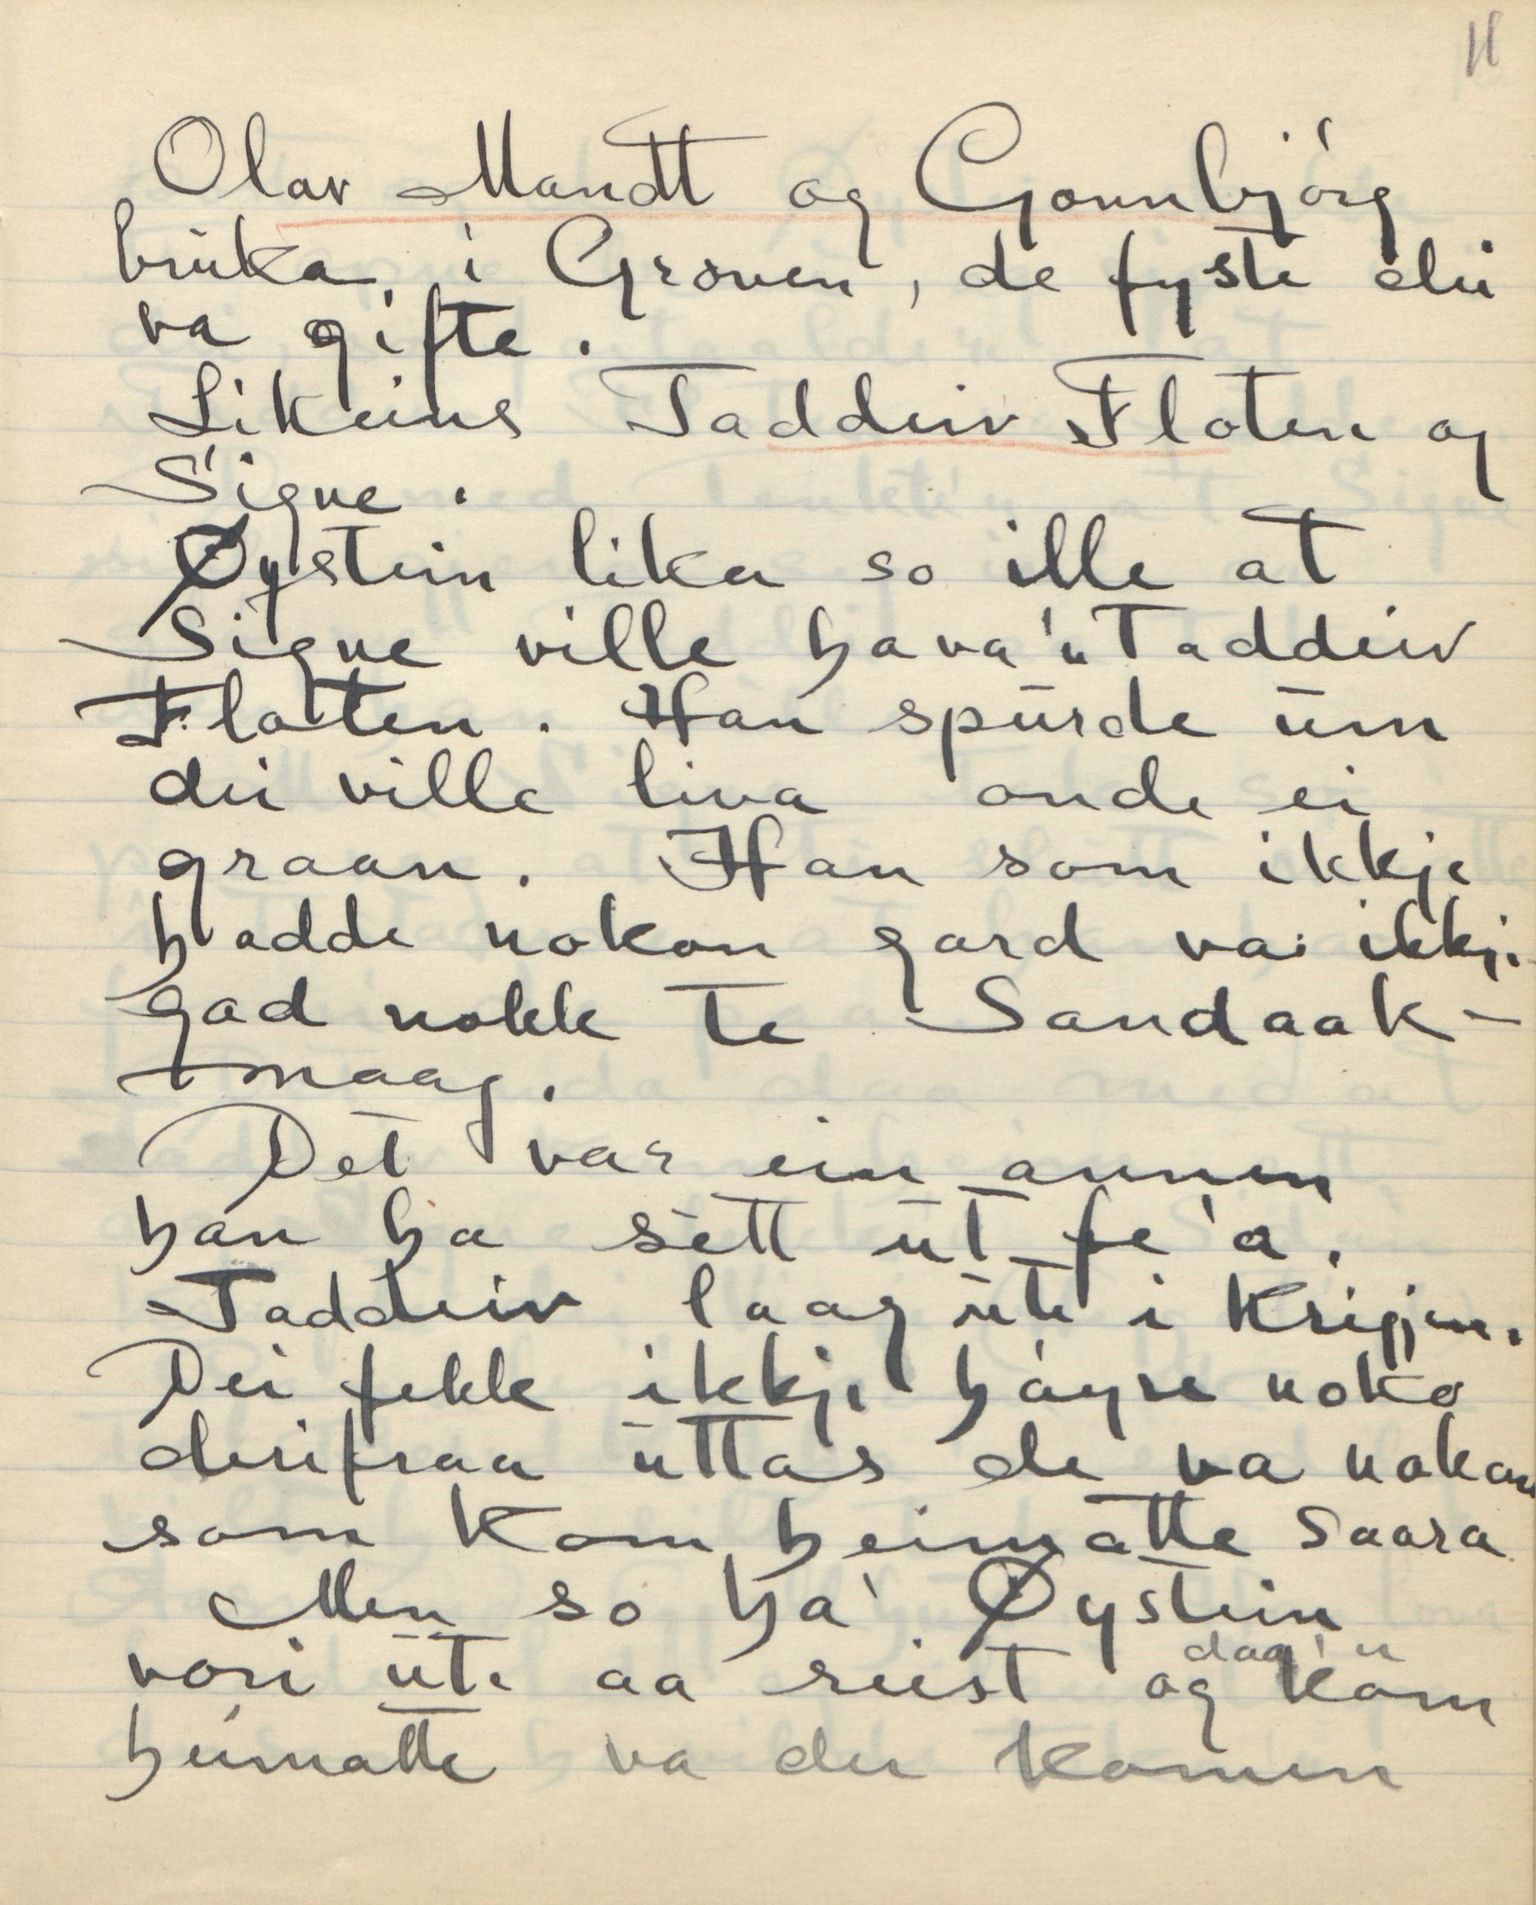 11
Olav Mandt og Gonnbjórg
bruka i Groven, de fyste dei
va gifte.
Likeins Taddeiv Floten og
Signe.
Øystein lika so ille at
Signe ville hava'n Taddeiv
Flotten. Han spurde um
dei ville liva onde ei
graan. Han som ikkje
hadde nokon gard va ikkje
gad nokk te Sandaak-
maag.
Det var ein annen
han ha sett ut fe'a.
Taddeiv laag ute i Krigjen.
Dei fekk ikkje háyre noko
derifraa uttas de va nokon
som kom heimatte saara
Men so ha' Øystein
dag'n
vori ute aa reist og kom
heimatte va der komen